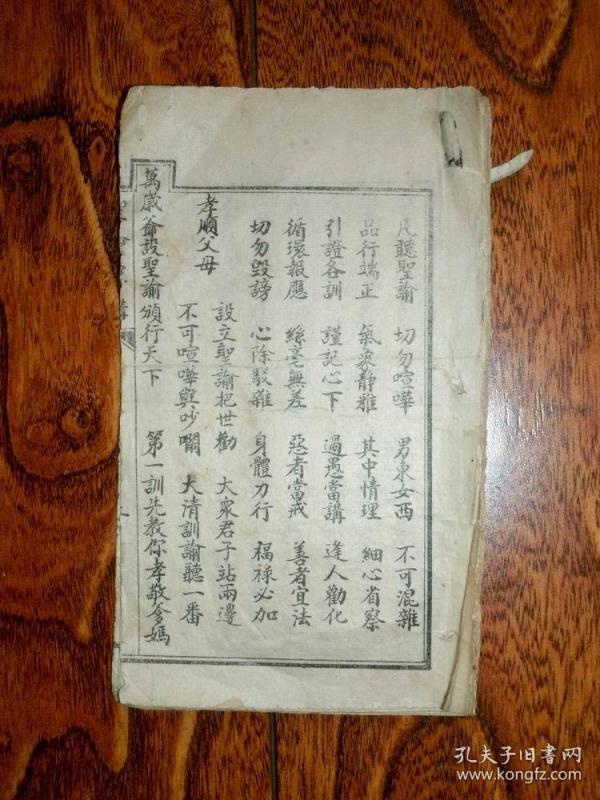 凡聽聖諭 切勿喧嘩 男東女西 不可混雜
品行端正 氣象靜雅 其中情理 細心省察
引證各訓 謹記心下 過愚當講 逢人勸化
循環報應 絲毫無差 惡者當戒 善者宜法
切勿毀謗 心除駁雜 身體力行 福祿必加
孝順父母 設立聖諭把世勸 大衆君子站兩邊
不可喧嘩與吵鬧 大清訓諭聽一番
萬歲爺設聖諭頒行天下 第一訓先教你孝敬爹媽
孔夫子旧书网
www.kongfz.com